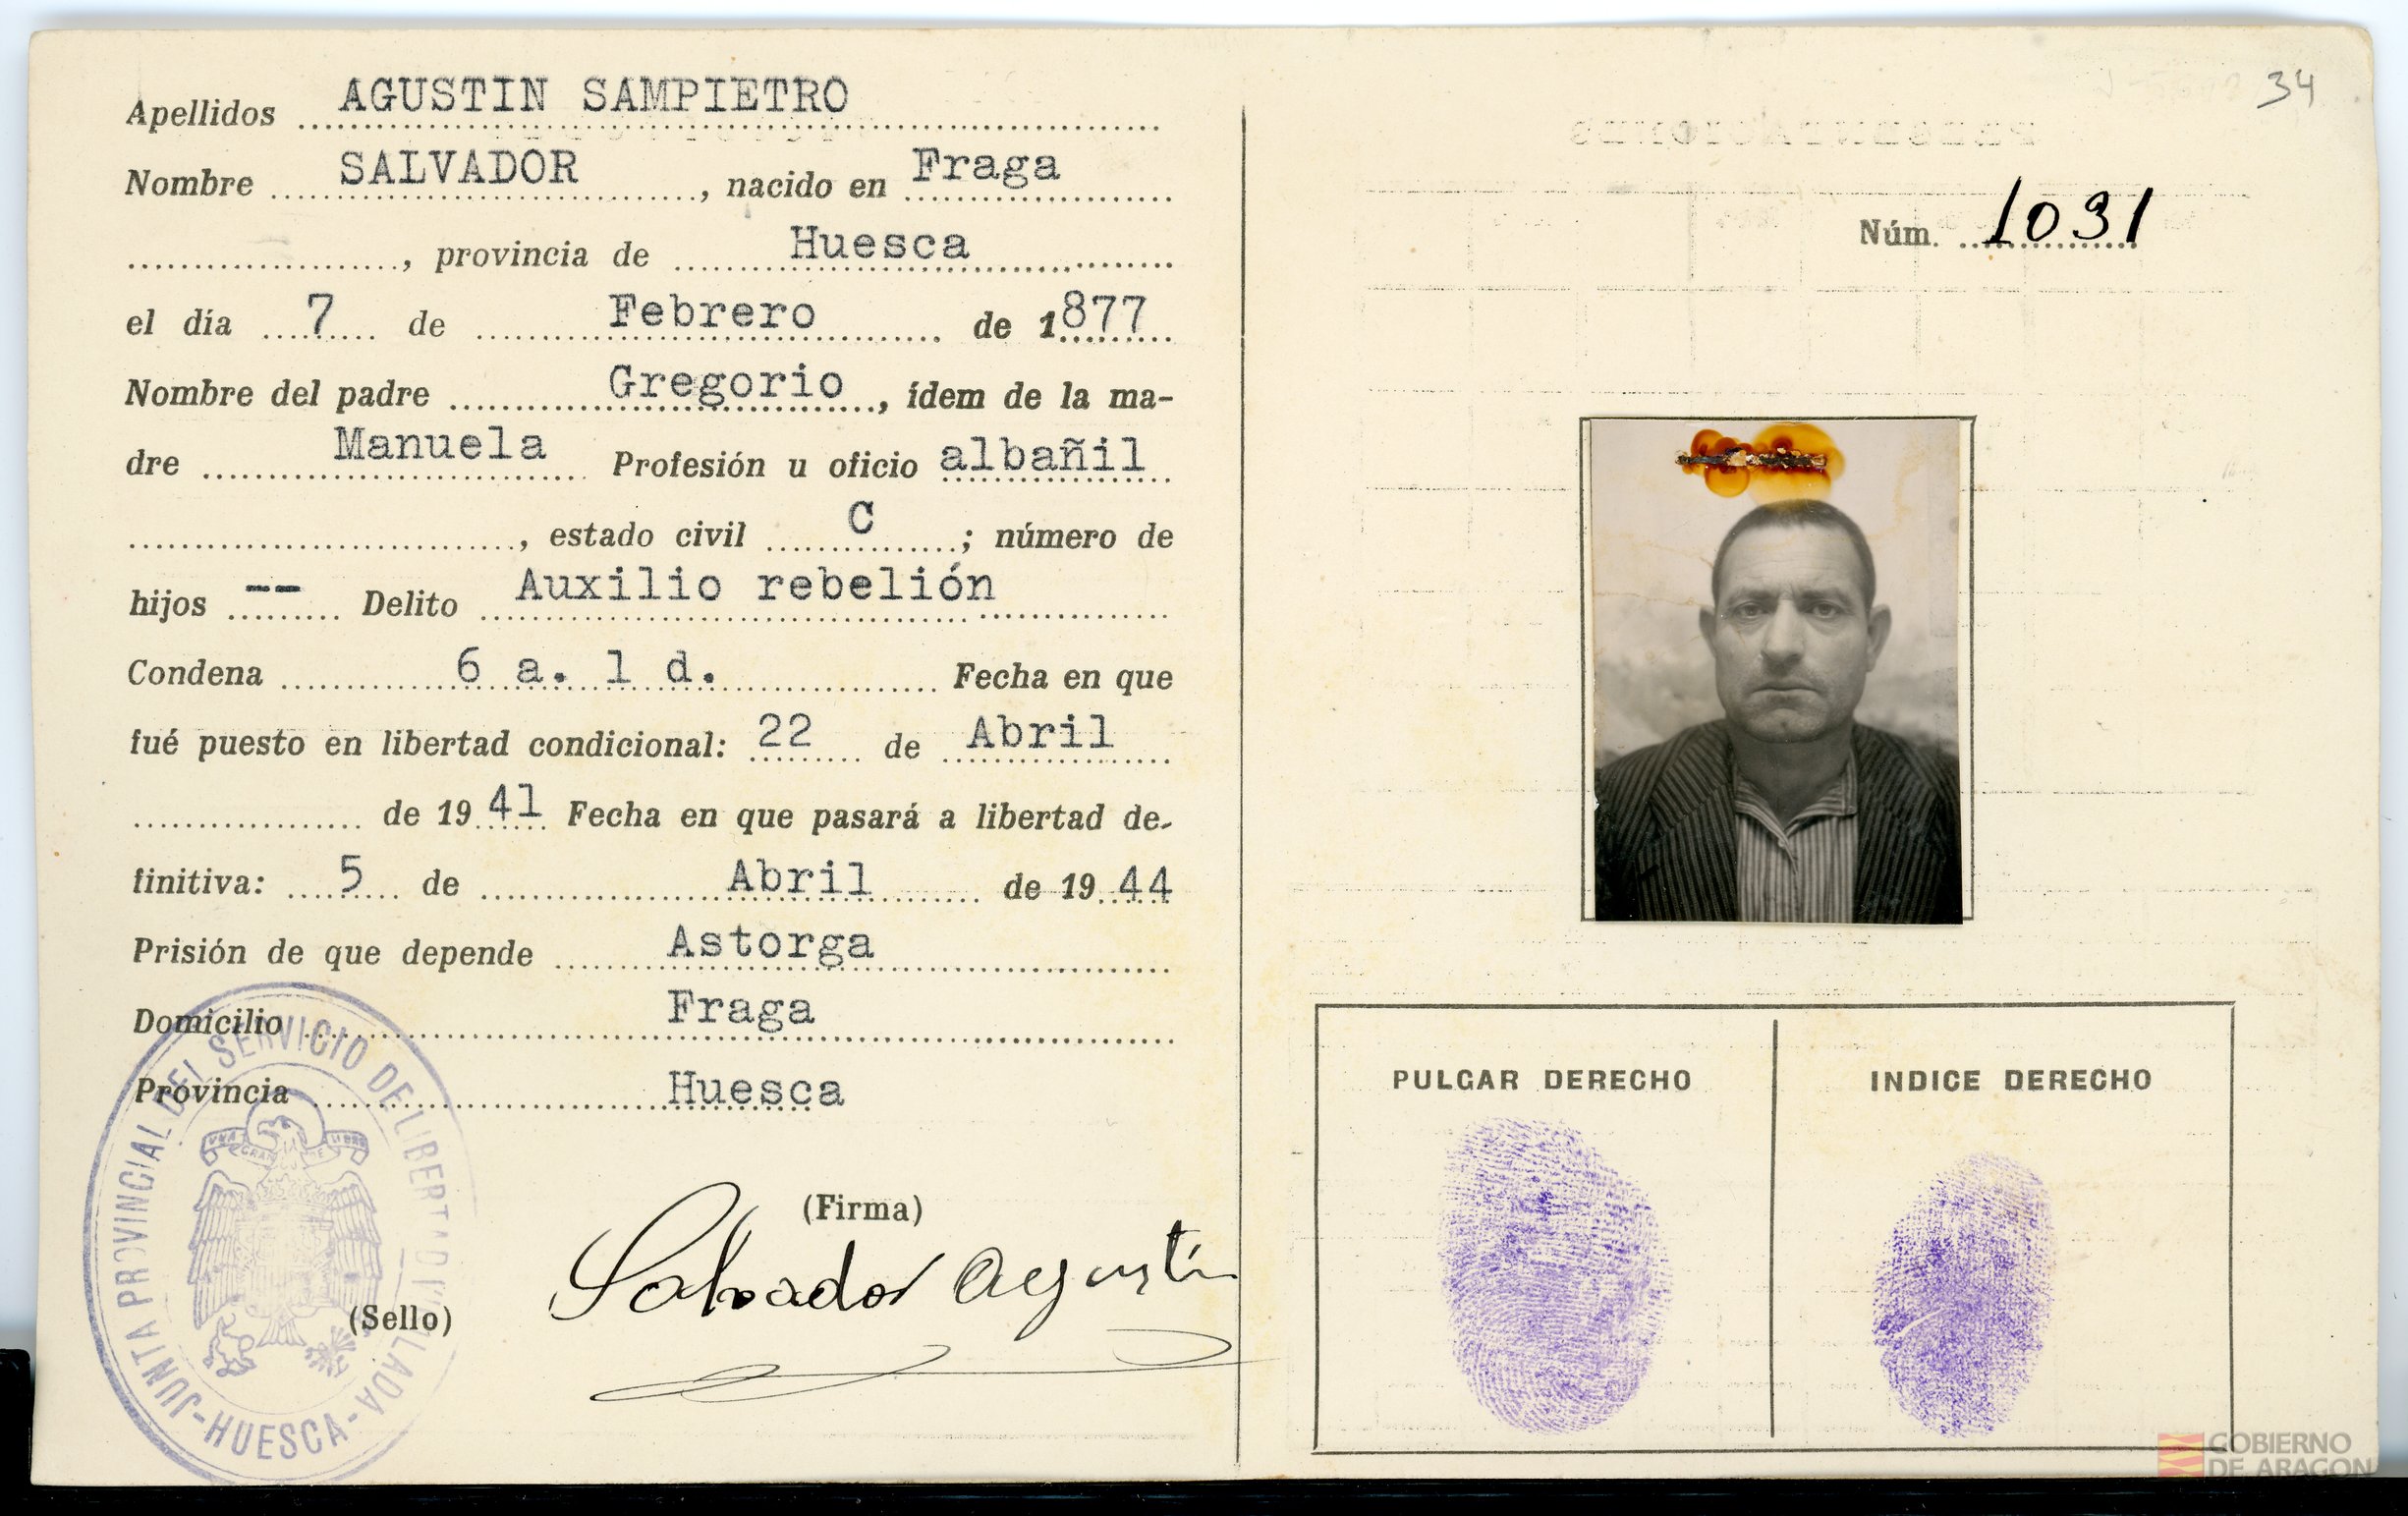 Apellidos AGUSTIN SAMPIETRO
Nombre SALVADOR, nacido en Fraga
, provincia de Huesca
el día 7 de Febrero de 1877
Nombre del padre Gregorio, ídem de la ma-
dre Manuela Profesión u oficio albañil
, estado civil C; número de
hijos -- Delito Auxilio rebelión
Condena 6 a. 1 d. Fecha en que
fué puesto en libertad condicional: 22 de Abril
de 1941 Fecha en que pasará a libertad de-
finitiva: 5 de Abril de 1944
Prisión de que depende Astorga
Domicilio Fraga
Provincia Huesca
(Firma)
Salvador Agustín
(Sello)
JUNTA PROVINCIAL DEL SERVICIO DE LIBERTAD VIGILADA
-HUESCA-
UNA GRANDE LIBRE
34
PRESENTACIONES
Núm. 1031
PULGAR DERECHO
INDICE DERECHO
GOBIERNO
DE ARAGON